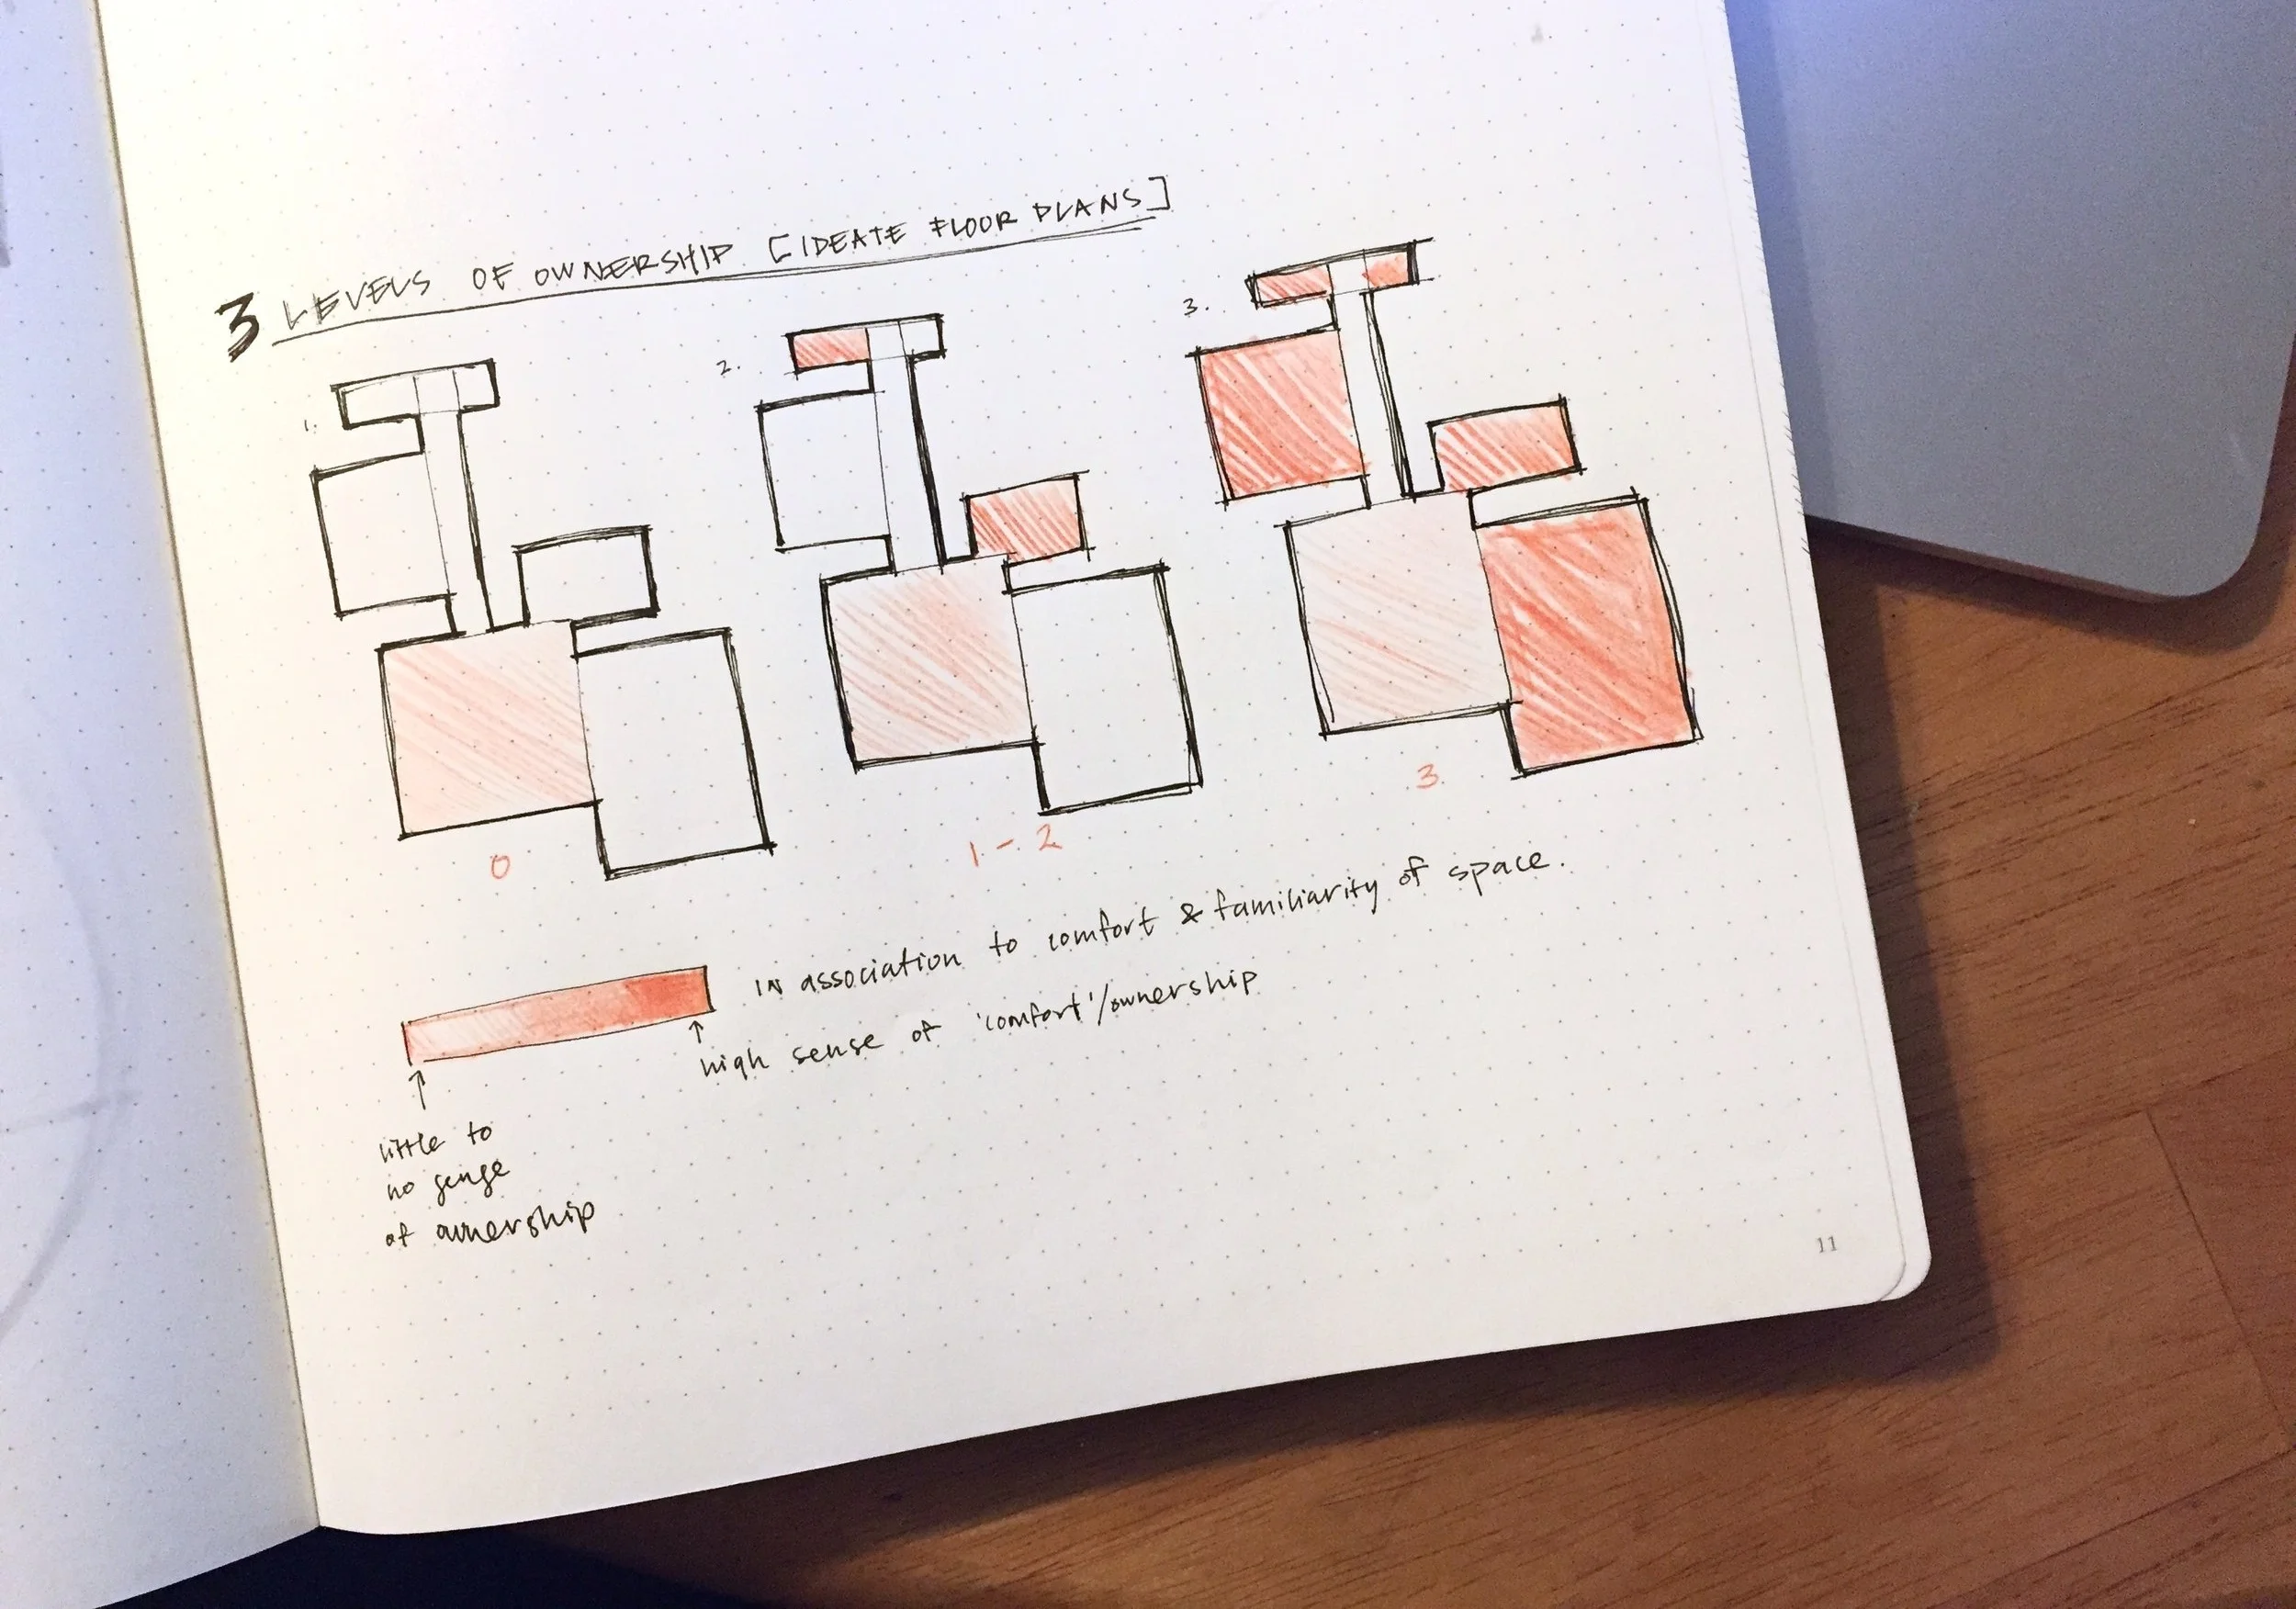 3 LEVELS OF OWNERSHIP [IDEATE FLOOR PLANS]
1.
2.
3.
0
1 - 2
3
IN association to comfort & familiarity of space.
high sense of 'comfort'/ownership
little to
no sense
of ownership
11